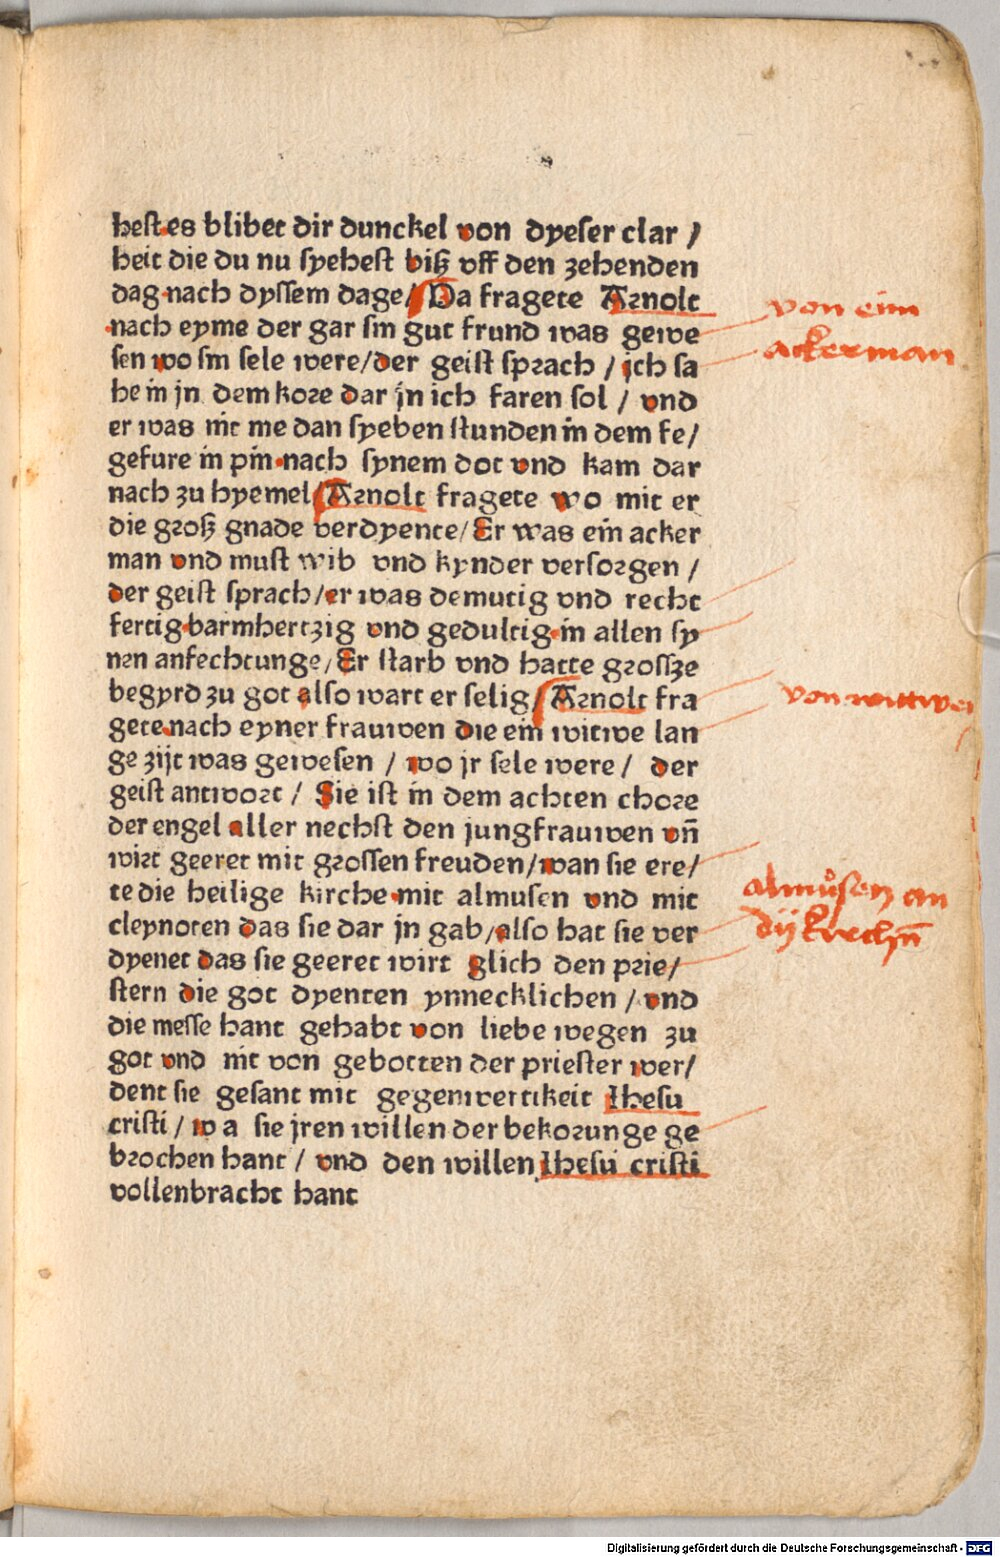 hest es blibet dir dunckel von dyeser clar /
heit die du nu syehest biß vff den zehenden
dag nach dyssem dage / Da fragete Arnolt
nach eyme der gar sin gut frund was gewe
sen wo sin sele were / der geist sprach / ich sa
he in jn dem kore dar jn ich faren sol / vnd
er was nit me dan syeben stunden in dem fe /
gefure in pin nach synem dot vnd kam dar
nach zu hyemel / Arnolt fragete wo mit er
die groß gnade verdyente / Er was ein acker
man vnd must wib vnd kynder versorgen /
der geist sprach / er was demutig vnd recht
fertig barmhertzig vnd gedultig in allen sy
nen anfechtunge / Er starb vnd hatte grossze
begyrd zu got also wart er selig / Arnolt fra
gete nach eyner frauwen die ein witwe lan
ge zijt was gewesen / wo jr sele were / der
geist antwort / Sie ist in dem achten chore
der engel aller nechst den jungfrauwen vñ
wirt geeret mit grossen freuden / wan sie ere /
te die heilige kirche mit almusen vnd mit
cleynoten das sie dar jn gab / also hat sie ver
dyenet das sie geeret wirt glich den prie /
stern die got dyenten ynnecklichen / vnd
die messe hant gehabt von liebe wegen zu
got vnd nit von gebotten der priester wer /
dent sie gesant mit gegenwertikeit Ihesu
cristi / wa sie jren willen der bekorunge ge
brochen hant / vnd den willen Ihesu cristi
vollenbracht hant
von eim
ackerman
von wittwei
almůsen an
dij kirchñ
Digitalisierung gefördert durch die Deutsche Forschungsgemeinschaft - DFG